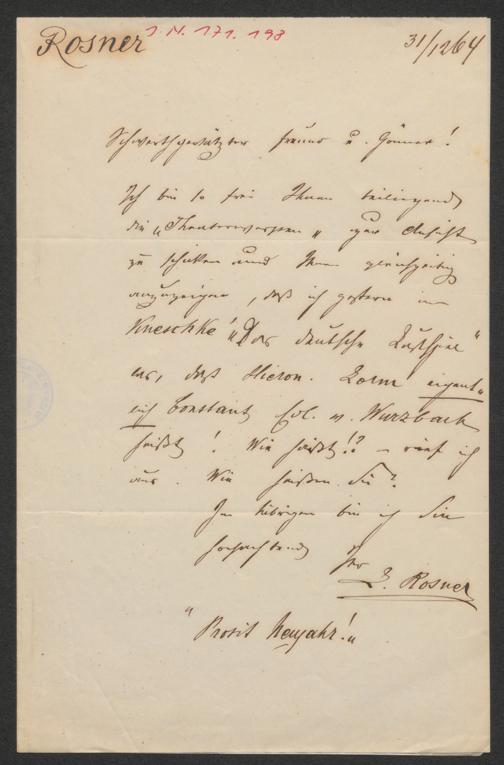 Rosner
J. N. 171.198
31/12 64
Hochwerthgeschätzter Freund u. Gönner!
Ich bin so frei Ihnen beiliegend
die „Theater „ zur Ansicht
zu schicken und Ihnen gleichzeitig
anzuzeigen, daß ich gestern in
Kneschke! „Das deutsche Lustspiel“
las, daß Hieron. Lorm eigent„
lich Constant Edl. v. Wurzbach
heißt! Wie heißt!? – rief ich
aus. Wie heißen Sie?
Im Übrigen bin ich Sie
hochachtend Ihr
L. Rosner
"Prosit Neujahr!„